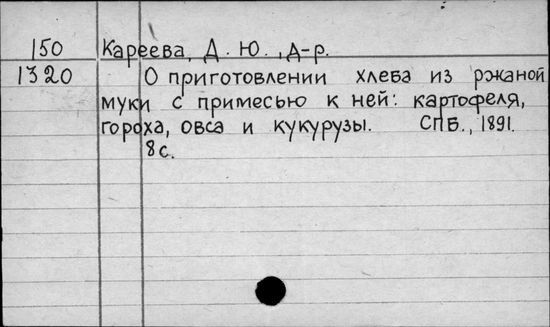 150 Кареева, Д. Ю., д-р.
1320 О приготовлении хлеба из ржаной
муки с примесью к ней: картофеля,
гороха, овса и кукурузы. СПБ., 1891.
8с.